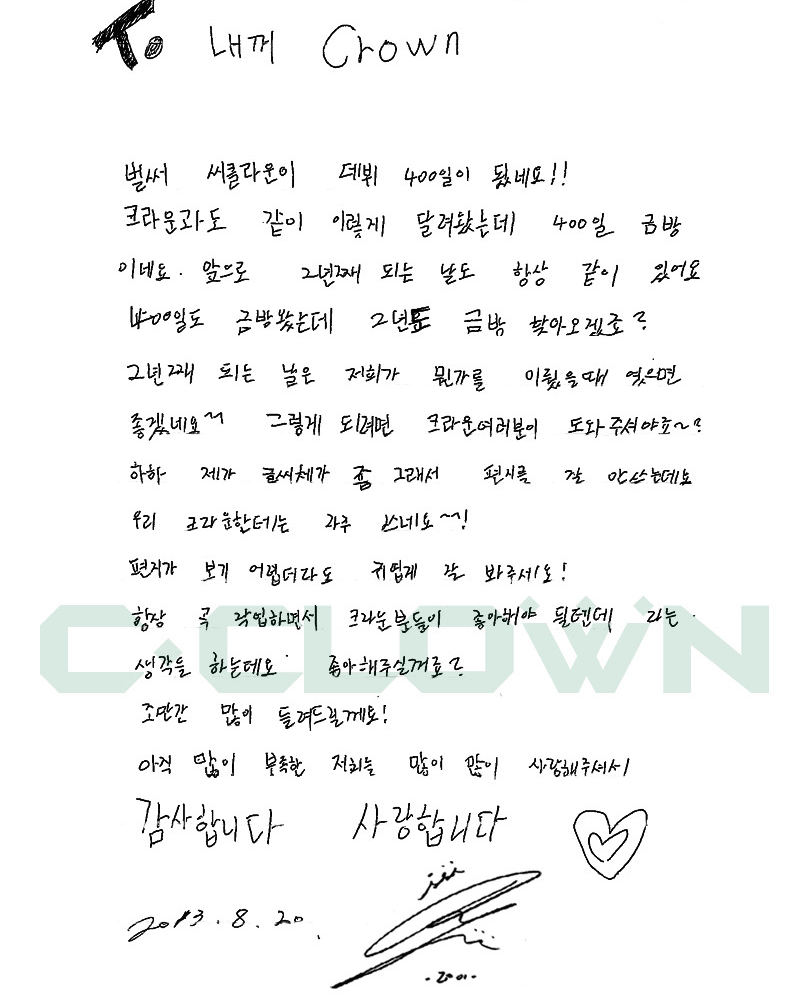 To 내꺼 Crown
벌써 씨클라운이 데뷔 400일이 됐네요!!
크라운과도 같이 이렇게 달려왔는데 400일 금방
이네요. 앞으로 2년째 되는 날도 항상 같이 있어요
400일도 금방왔는데 2년도 금방 찾아오겠죠?
2년째 되는 날은 저희가 뭔가를 이뤘을때 였으면
좋겠네요~ 그렇게 되려면 크라운여러분이 도와주셔야죠~?
하하 제가 글씨체가 좀 그래서 편지를 잘 안쓰는데요
우리 크라운한테는 자주 쓰네요~!
편지가 보기 어렵더라도 귀엽게 잘 봐주세요!
항상 곡 작업하면서 크라운분들이 좋아해야 될텐데 라는
생각을 하는데요 좋아해주실꺼죠?
조만간 많이 들려드릴께요!
아직 많이 부족한 저희를 많이 많이 사랑해주셔서
감사합니다 사랑합니다
2013.8.20.
C-CLOWN